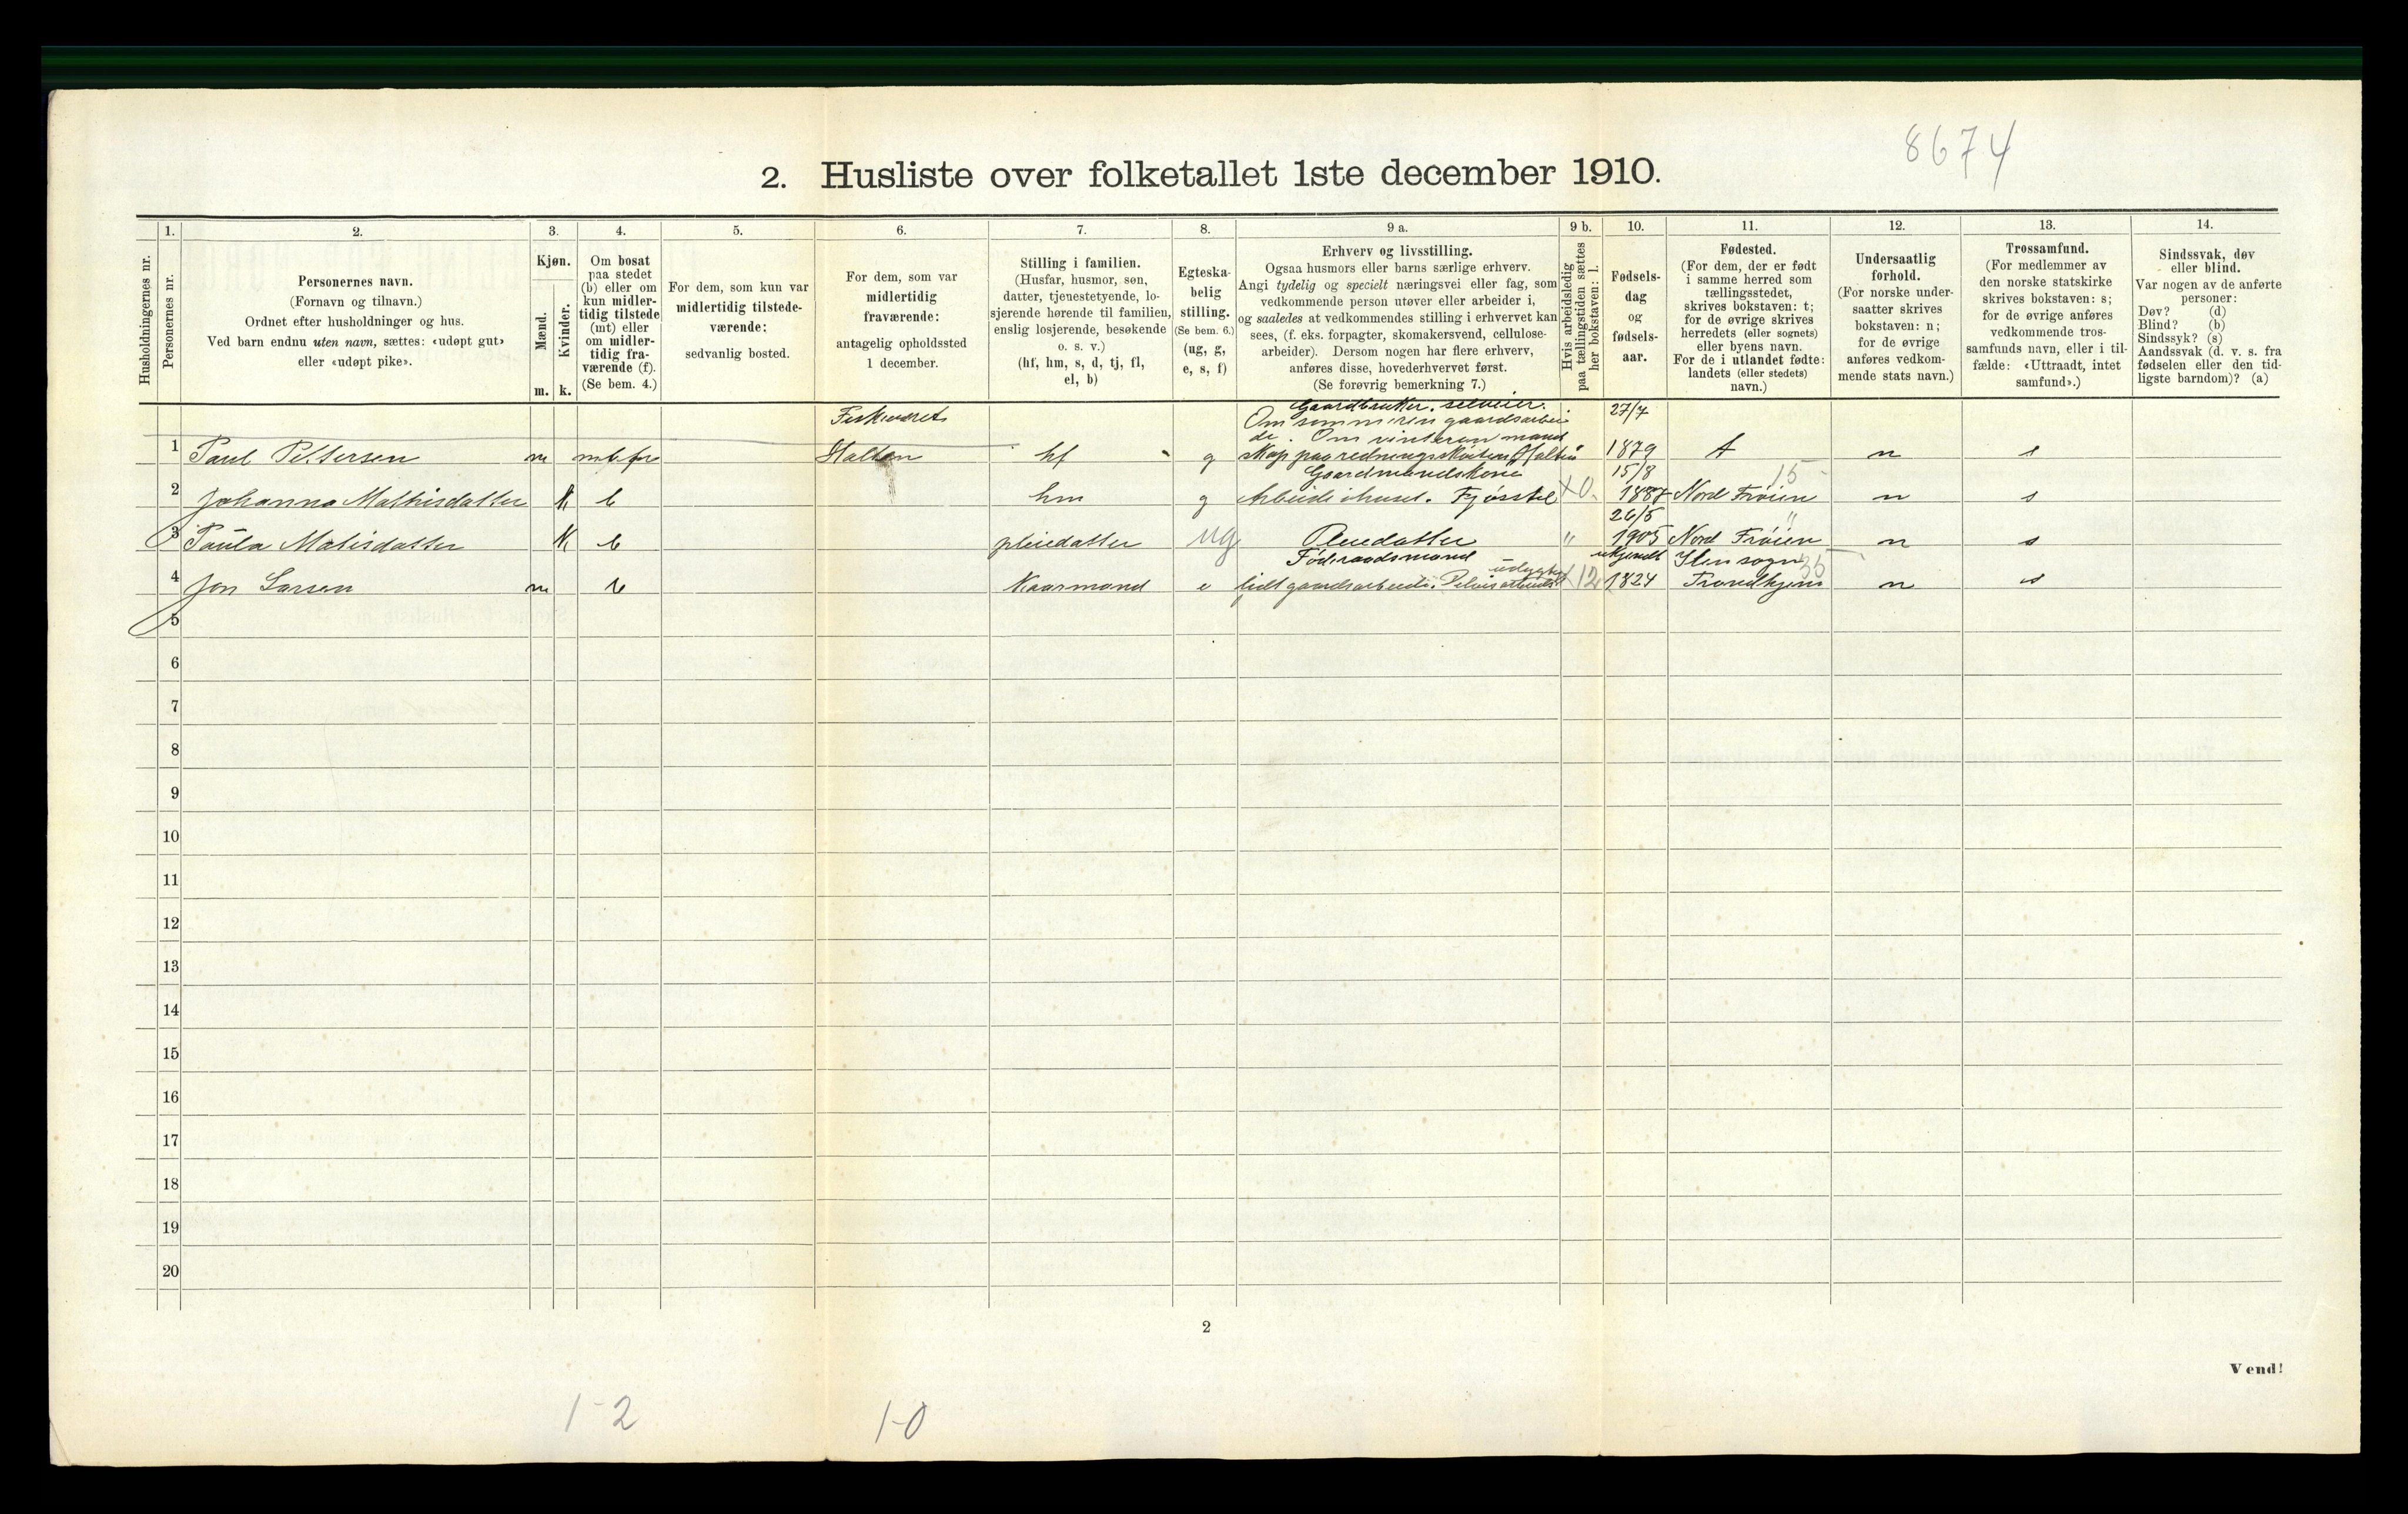 8674
2. Husliste over folketallet 1ste december 1910.
Husholdningernes nr.
1.
Personernes nr.
2.
Personernes navn.
(Fornavn og tilnavn.)
Ordnet efter husholdninger og hus.
Ved barn endnu uten navn, sættes: «udøpt gut»
eller «udøpt pike».
3.
Kjøn.
Mænd.
Kvinder.
m. k.
4.
Om bosat
paa stedet
(b) eller om
kun midler-
tidig tilstede
(mt) eller
om midler-
tidig fra-
værende (f).
(Se bem. 4.)
5.
For dem, som kun var
midlertidig tilstede-
værende:
sedvanlig bosted.
6.
For dem, som var
midlertidig
fraværende:
antagelig opholdssted
1 december.
7.
Stilling i familien.
(Husfar, husmor, søn,
datter, tjenestetyende, lo-
sjerende hørende til familien,
enslig losjerende, besøkende
o. s. v.)
(hf, hm, s, d, tj, fl,
el, b)
8.
Egteska-
belig
stilling.
(Se bem. 6.)
(ug, g,
e, s, f)
9 a.
Erhverv og livsstilling.
Ogsaa husmors eller barns særlige erhverv.
Angi tydelig og specielt næringsvei eller fag, som
vedkommende person utøver eller arbeider i,
og saaledes at vedkommendes stilling i erhvervet kan
sees, (f. eks. forpagter, skomakersvend, cellulose-
arbeider). Dersom nogen har flere erhverv,
anføres disse, hovederhvervet først.
(Se forøvrig bemerkning 7.)
9 b.
Hvis arbeidsledig
paa tællingstiden sættes
her bokstaven: l.
10.
Fødsels-
dag
og
fødsels-
aar.
11.
Fødested.
(For dem, der er født
i samme herred som
tællingsstedet,
skrives bokstaven: t;
for de øvrige skrives
herredets (eller sognets)
eller byens navn.
For de i utlandet fødte:
landets (eller stedets)
navn.)
12.
Undersaatlig
forhold.
(For norske under-
saatter skrives
bokstaven: n;
for de øvrige
anføres vedkom-
mende stats navn.)
13.
Trossamfund.
(For medlemmer av
den norske statskirke
skrives bokstaven: s;
for de øvrige anføres
vedkommende tros-
samfunds navn, eller i til-
fælde: «Uttraadt, intet
samfund».)
14.
Sindssvak, døv
eller blind.
Var nogen av de anførte
personer:
Døv? (d)
Blind? (b)
Sindssyk? (s)
Aandssvak (d. v. s. fra
fødselen eller den tid-
ligste barndom)? (a)
Fiskeværet Gaardbruker. selveier. 27/7
Om sommeren gaardsarbei
de. Om vinteren mand
1 Paul Pettersen m Halten hf g skap paa redningsskøiten Halten 1879 t n s
Gaardmandskone 15/8 15
2 Johanna Mathisdatter k b hm g Arbeide i huset. Fjøsstel X0. 1887 Nord Frøien n s
26/5 "
3 Paula Matisdatter k b pleiedatter ug Pleiedatter " 1905 Nord Frøien n s
Føderaadsmand ukjendt Ilen sogn 35
4 Jon Larsen m b Kaarmand e lidt gaardsarbeide. X12 1824 Trondhjem n s
5
6
7
8
9
10
11
12
13
14
15
16
17
18
19
20
2
Vend!
1-2 1-0